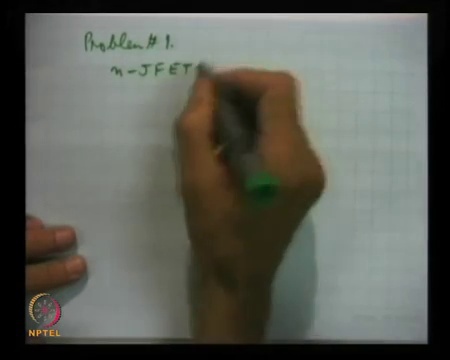 Problem # 1.
n-JFET
NPTEL